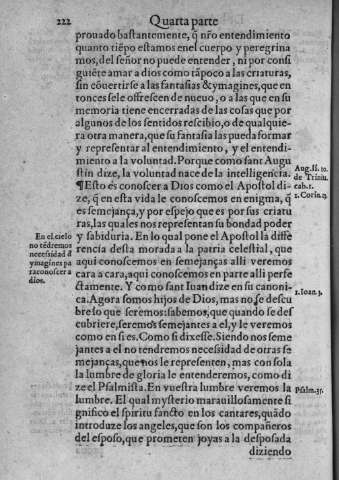 222 Quarta parte
prouado bastantemente, q̃ nr̃o entendimiento
quanto tiẽpo estamos enel cuerpo y peregrina
mos, del señor no puede entender, ni por consi
guiẽte amar a dios como tãpoco a las criaturas,
sin cõuertirse a las fantasias & ymagines, que en
tonces se le offrescen de nueuo, o a las que en su
memoria tiene encerradas de las cosas que por
algunos de los sentidos rescibio, o de qualquie-
ra otra manera, que su fantasia las pueda formar
y representar al entendimiento, y el entendi-
miento a la voluntad. Porque como sant Augu
stin dize, la voluntad nace de la intelligencia.
¶ Esto es conoscer a Dios como el Apostol di-
ze, q̃ en esta vida le conoscemos en enigma, q̃
es semejança, y por espejo que es por sus criatu
ras, las quales nos representan su bondad poder
y sabiduria. En lo qual pone el Apostol la diffe
rencia desta morada a la patria celestial, que
aqui conoscemos en semejanças alli veremos
cara a cara, aqui conoscemos en parte alli perfe
ctamente. Y como sant Iuan dize en su canoni-
ca. Agora somos hijos de Dios, mas no se descu
bre lo que seremos: sabemos, que quando se des
cubriere, seremos semejantes a el, y le veremos
como en si es. Como si dixesse. Siendo nos seme
jantes a el no tendremos necessidad de otras se
mejanças, que nos le representen, mas con sola
la lumbre de gloria le entenderemos, como di
ze el Psalmista. En vuestra lumbre veremos la
lumbre. El qual mysterio marauillosamente si
gnifico el spiritu sancto en los cantares, quãdo
introduze los angeles, que son los compañeros
del esposo, que prometen joyas a la desposada
diziendo
Aug. li. 10.
de Trini.
cab. 1.
1. Corin. 13
En el cielo
no tẽdremos
necesidad d̃
ymagines pa
ra conoscer a
dios.
1. Ioan. 3.
Psalm. 35.